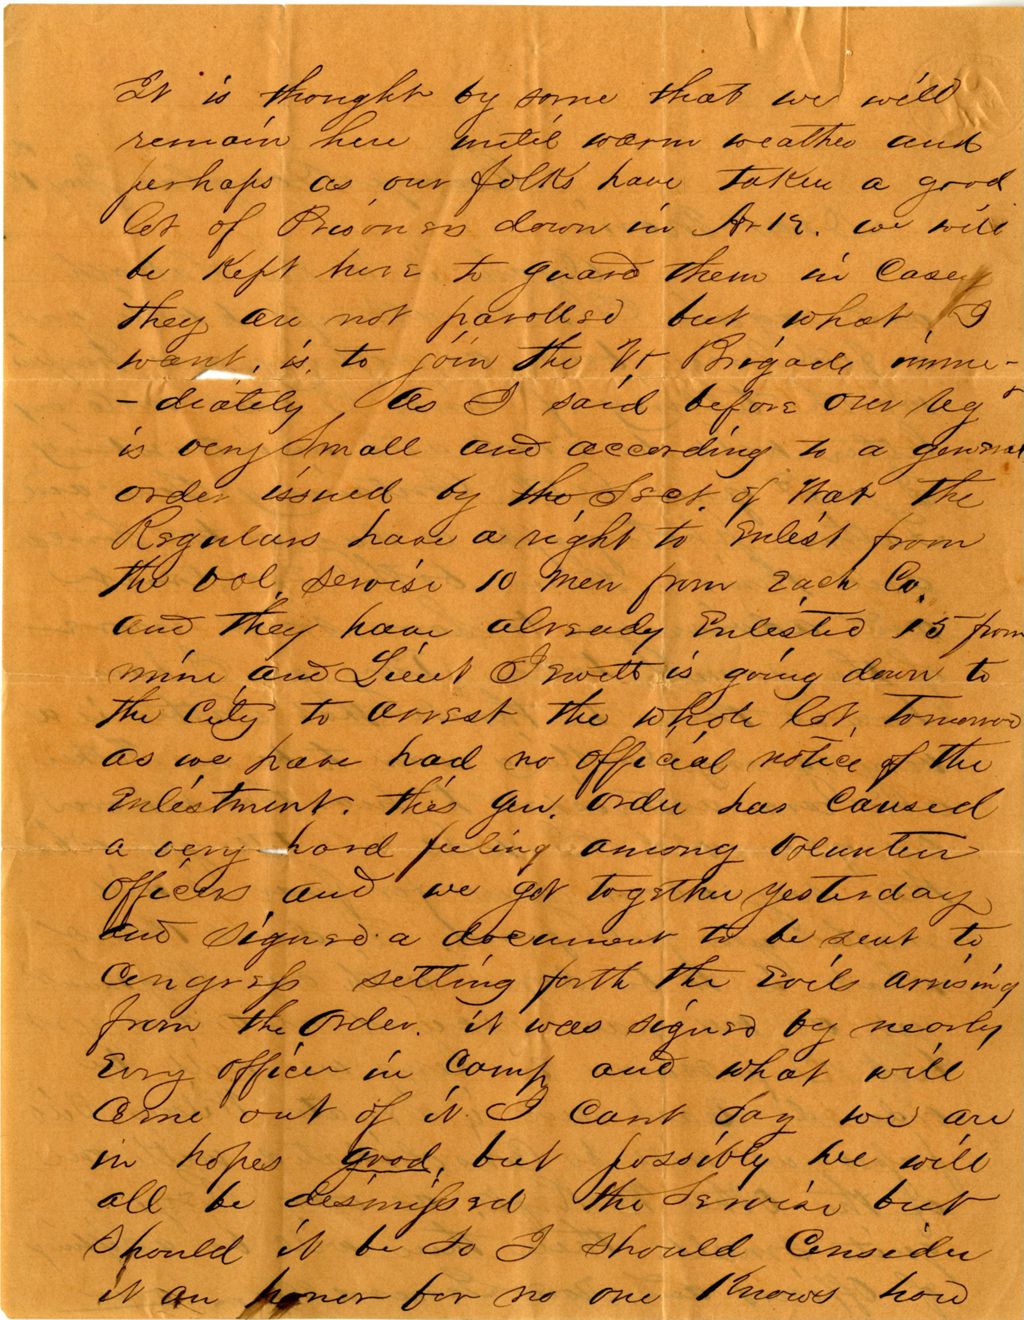 It is thought by some that we will
remain here until warm weather and
perhaps as our folks have taken a good
lot of Prisoners down in Ark. we will
be Kept here to guard them in Case
they are not parolled but what I
want, is, to join the Vt Brigade imme-
-diately as I said before our reg
is very Small and according to a general
order issued by the Sect. of War the
Regulars have a right to Enlist from
the vol. servise 10 men from Each Co.
and they have already Enlisted 15 from
mine and Lieut Jewett is going down to
the City to arrest the whole lot tomorrow
as we have had no official notice of the
Enlistment. this Gen. order has caused
a very hard feeling among Volunteer
officers and we got together yesterday
and signed a document to be sent to
Congress setting forth the Evils arrising
from the Order. it was signed by nearly
Evry officer in Camp and what will
Come out of it I cant Say we are
in hopes good, but possibly we will
all be desmissed the Servise but
Should it be So I should Consider
it an honor for no one Knows how